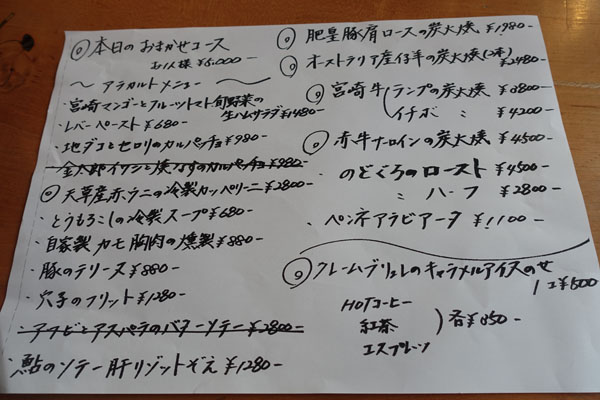 本日のおまかせコース
お1人様 ¥6,000ー
〜 アラカルトメニュー 〜
・宮崎マンゴーとフルーツトマト旬野菜の
生ハムサラダ ¥1480ー
・レバーペースト ¥680ー
・地ダコとセロリのカルパッチョ ¥980ー
・金太郎イワシと焼なすのカルパッチョ ¥980ー
天草産赤ウニの冷製カッペリーニ ¥2800ー
・とうもろこしの冷製スープ ¥680ー
・自家製カモ胸肉の燻製 ¥880ー
・豚のテリーヌ ¥880ー
・穴子のフリット ¥1280ー
・アワビとアスパラのバターソテー ¥2800ー
・鮎のソテー肝リゾットぞえ ¥1280ー
肥皇豚肩ロースの炭火焼 ¥1980ー
オーストラリア産仔羊の炭火焼(2本) ¥2480ー
宮崎牛 ランプの炭火焼 ¥3800ー
イチボ 〃 ¥4200ー
赤牛サーロインの炭火焼 ¥4500
のどぐろのロースト ¥4500ー
〃 ハーフ ¥2800ー
・ペンネアラビアータ ¥1100ー
クレームブリュレのキャラメルアイスのせ
1コ ¥500
HOTコーヒー
紅茶
エスプレッソ
各 ¥350ー